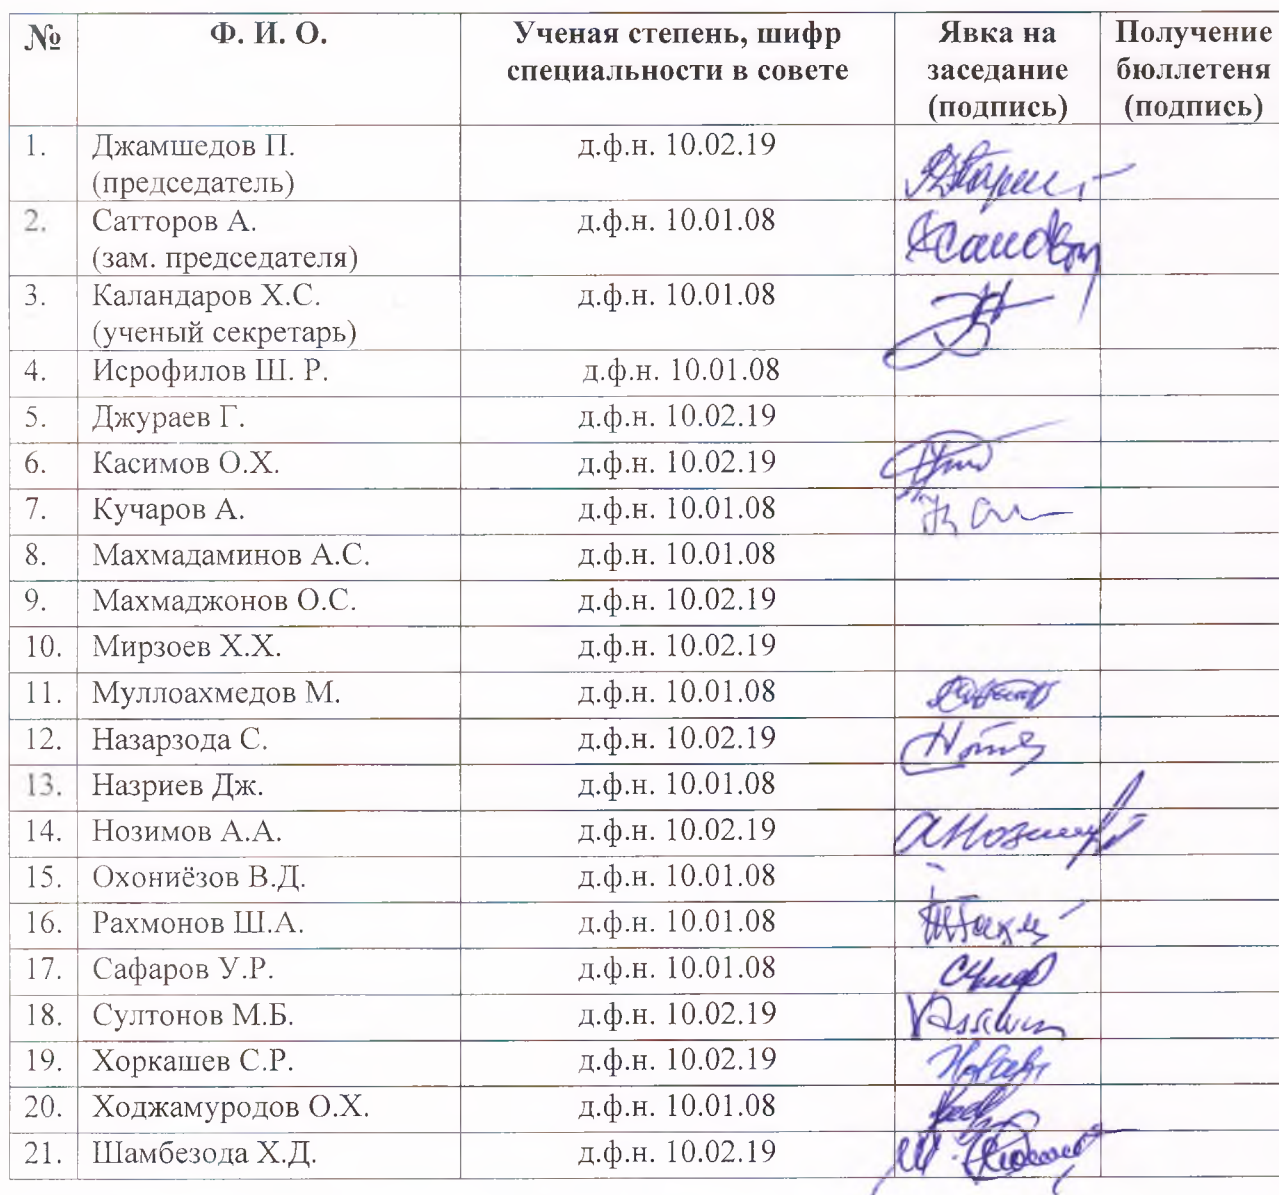 № Ф. И. О. Ученая степень, шифр специальности в совете Явка на заседание (подпись) Получение бюллетеня (подпись)
1. Джамшедов П. (председатель) д.ф.н. 10.02.19
2. Сатторов А. (зам. председателя) д.ф.н. 10.01.08
3. Каландаров Х.С. (ученый секретарь) д.ф.н. 10.01.08
4. Исрофилов Ш. Р. д.ф.н. 10.01.08
5. Джураев Г. д.ф.н. 10.02.19
6. Касимов О.Х. д.ф.н. 10.02.19
7. Кучаров А. д.ф.н. 10.01.08
8. Махмадаминов А.С. д.ф.н. 10.01.08
9. Махмаджонов О.С. д.ф.н. 10.02.19
10. Мирзоев Х.Х. д.ф.н. 10.02.19
11. Муллоахмедов М. д.ф.н. 10.01.08
12. Назарзода С. д.ф.н. 10.02.19
13. Назриев Дж. д.ф.н. 10.01.08
14. Нозимов А.А. д.ф.н. 10.02.19
15. Охониёзов В.Д. д.ф.н. 10.01.08
16. Рахмонов Ш.А. д.ф.н. 10.01.08
17. Сафаров У.Р. д.ф.н. 10.01.08
18. Султонов М.Б. д.ф.н. 10.02.19
19. Хоркашев С.Р. д.ф.н. 10.02.19
20. Ходжамуродов О.Х. д.ф.н. 10.01.08
21. Шамбезода Х.Д. д.ф.н. 10.02.19